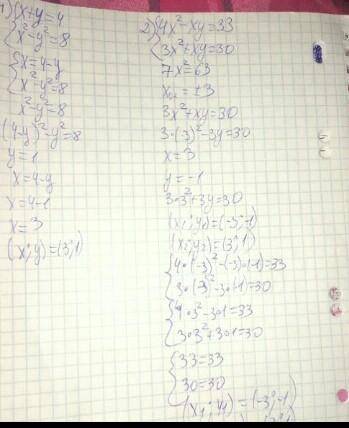 1) {x+y=4
{x²-y²=8
{x=4-y
{x²-y²=8
x²-y²=8
(4-y)²-y²=8
y=1
x=4-y
x=4-1
x=3
(x;y)=(3;1)
2) {4x²-xy=33
{3x²+xy=30
7x²=63
x₁,₂=±3
3x²+xy=30
3·(-3)²-3y=30
x=3
y=-1
3·3²+3y=30
(x₁;y₁)=(-3;-1)
(x₂;y₂)=(3;1)
{4·(-3)²-(-3)·(-1)=33
{3·(-3)²-3·(-1)=30
{4·3²-3·1=33
{3·3²+3·1=30
{33=33
{30=30
(x₁;y₁)=(-3;-1)